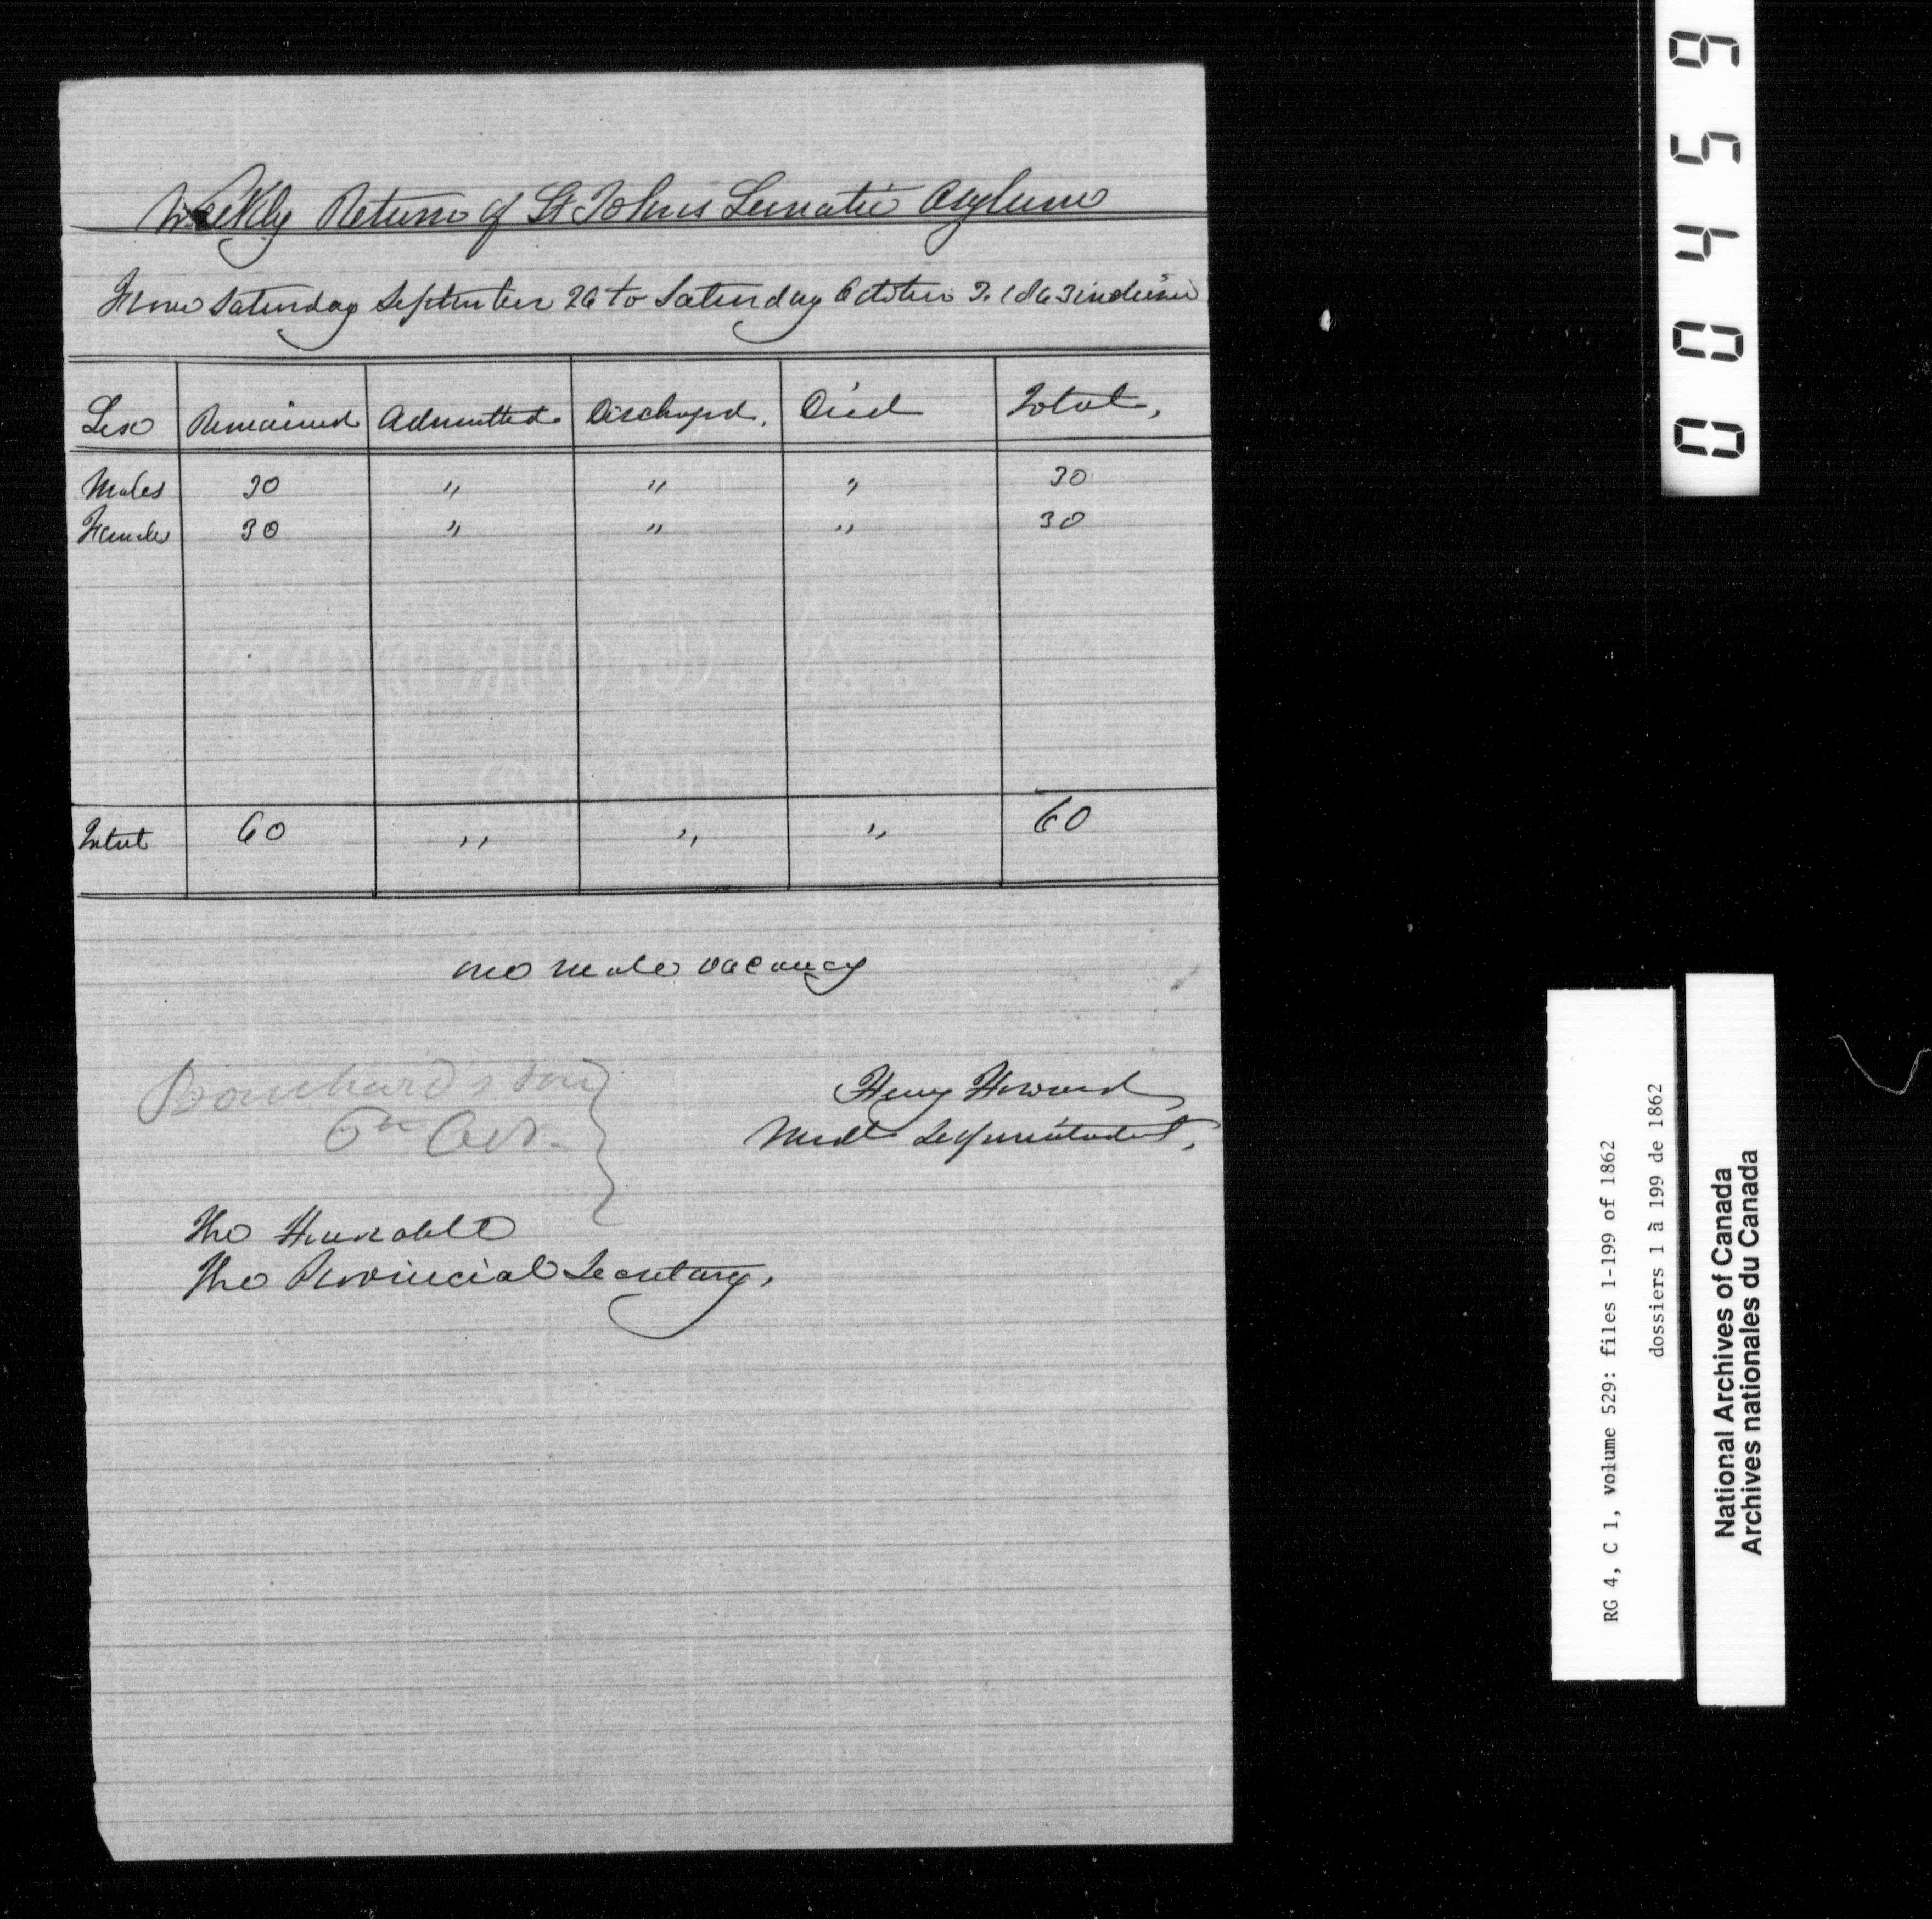 Weekly Return of St Johns Lunatic Asylum
From Saturday September 26 to Saturday October 3. 1863 inclusive
Sex Remained Admitted Discharged. Died Total,
Males 30 " " " 30
Females 30 " " " 30
Total 60 " " " 60
one male vacancy
Henry Howard
Medl Superintendent,
6th Oct.
The Honorable
The Provincial Secretary,
00459
RG 4, C 1, volume 529: files 1-199 of 1862
dossiers 1 à 199 de 1862
National Archives of Canada
Archives nationales du Canada